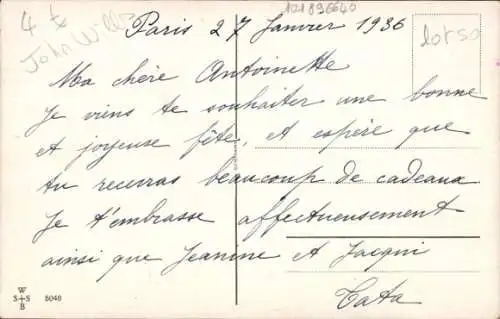 4 x
John Wills
101896640
lot 50
Paris 27 Janvier 1936
Ma chère Antoinette
Je viens te souhaiter une bonne
et joyeuse fête, et espère que
tu recevras beaucoup de cadeaux
Je t'embrasse affectueusement
ainsi que Jeanine et Jacqui
Tata
W
S+S
B
5048